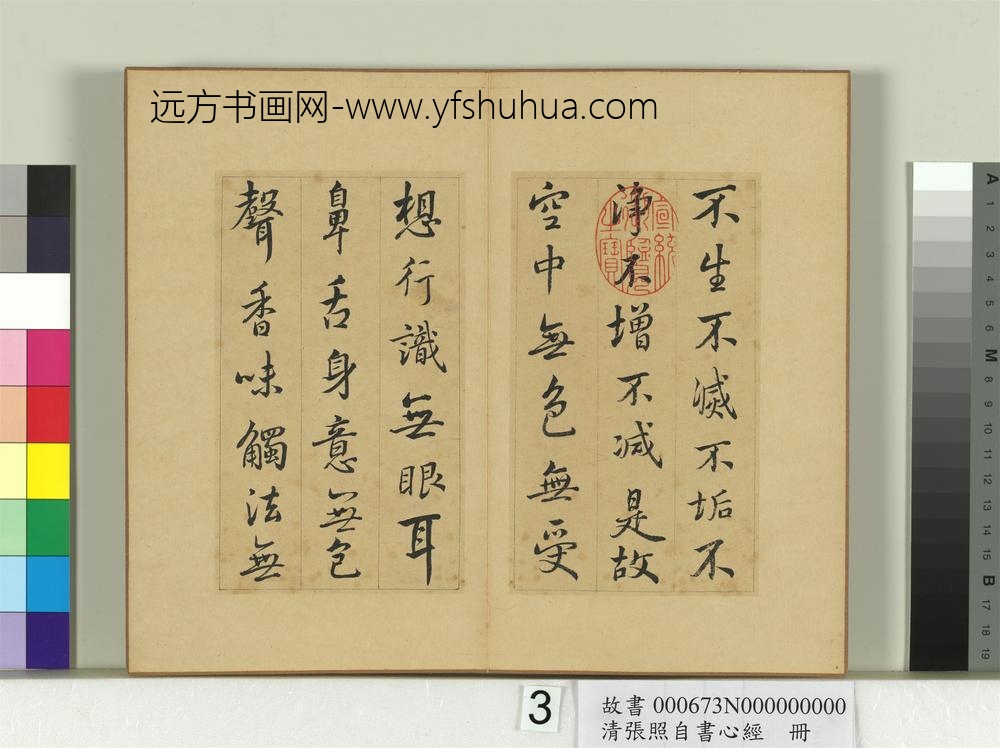 远方书画网-www.yfshuhua.com
不生不滅不垢不
淨不增不減是故
空中無色無受
想行識無眼耳
鼻舌身意無色
聲香味觸法無
宣統御覽之寶
A 1 2 3 4 5 6 M 8 9 10 11 12 13 14 15 B 17 18 19
3
故書 000673N000000000
清張照自書心經 冊